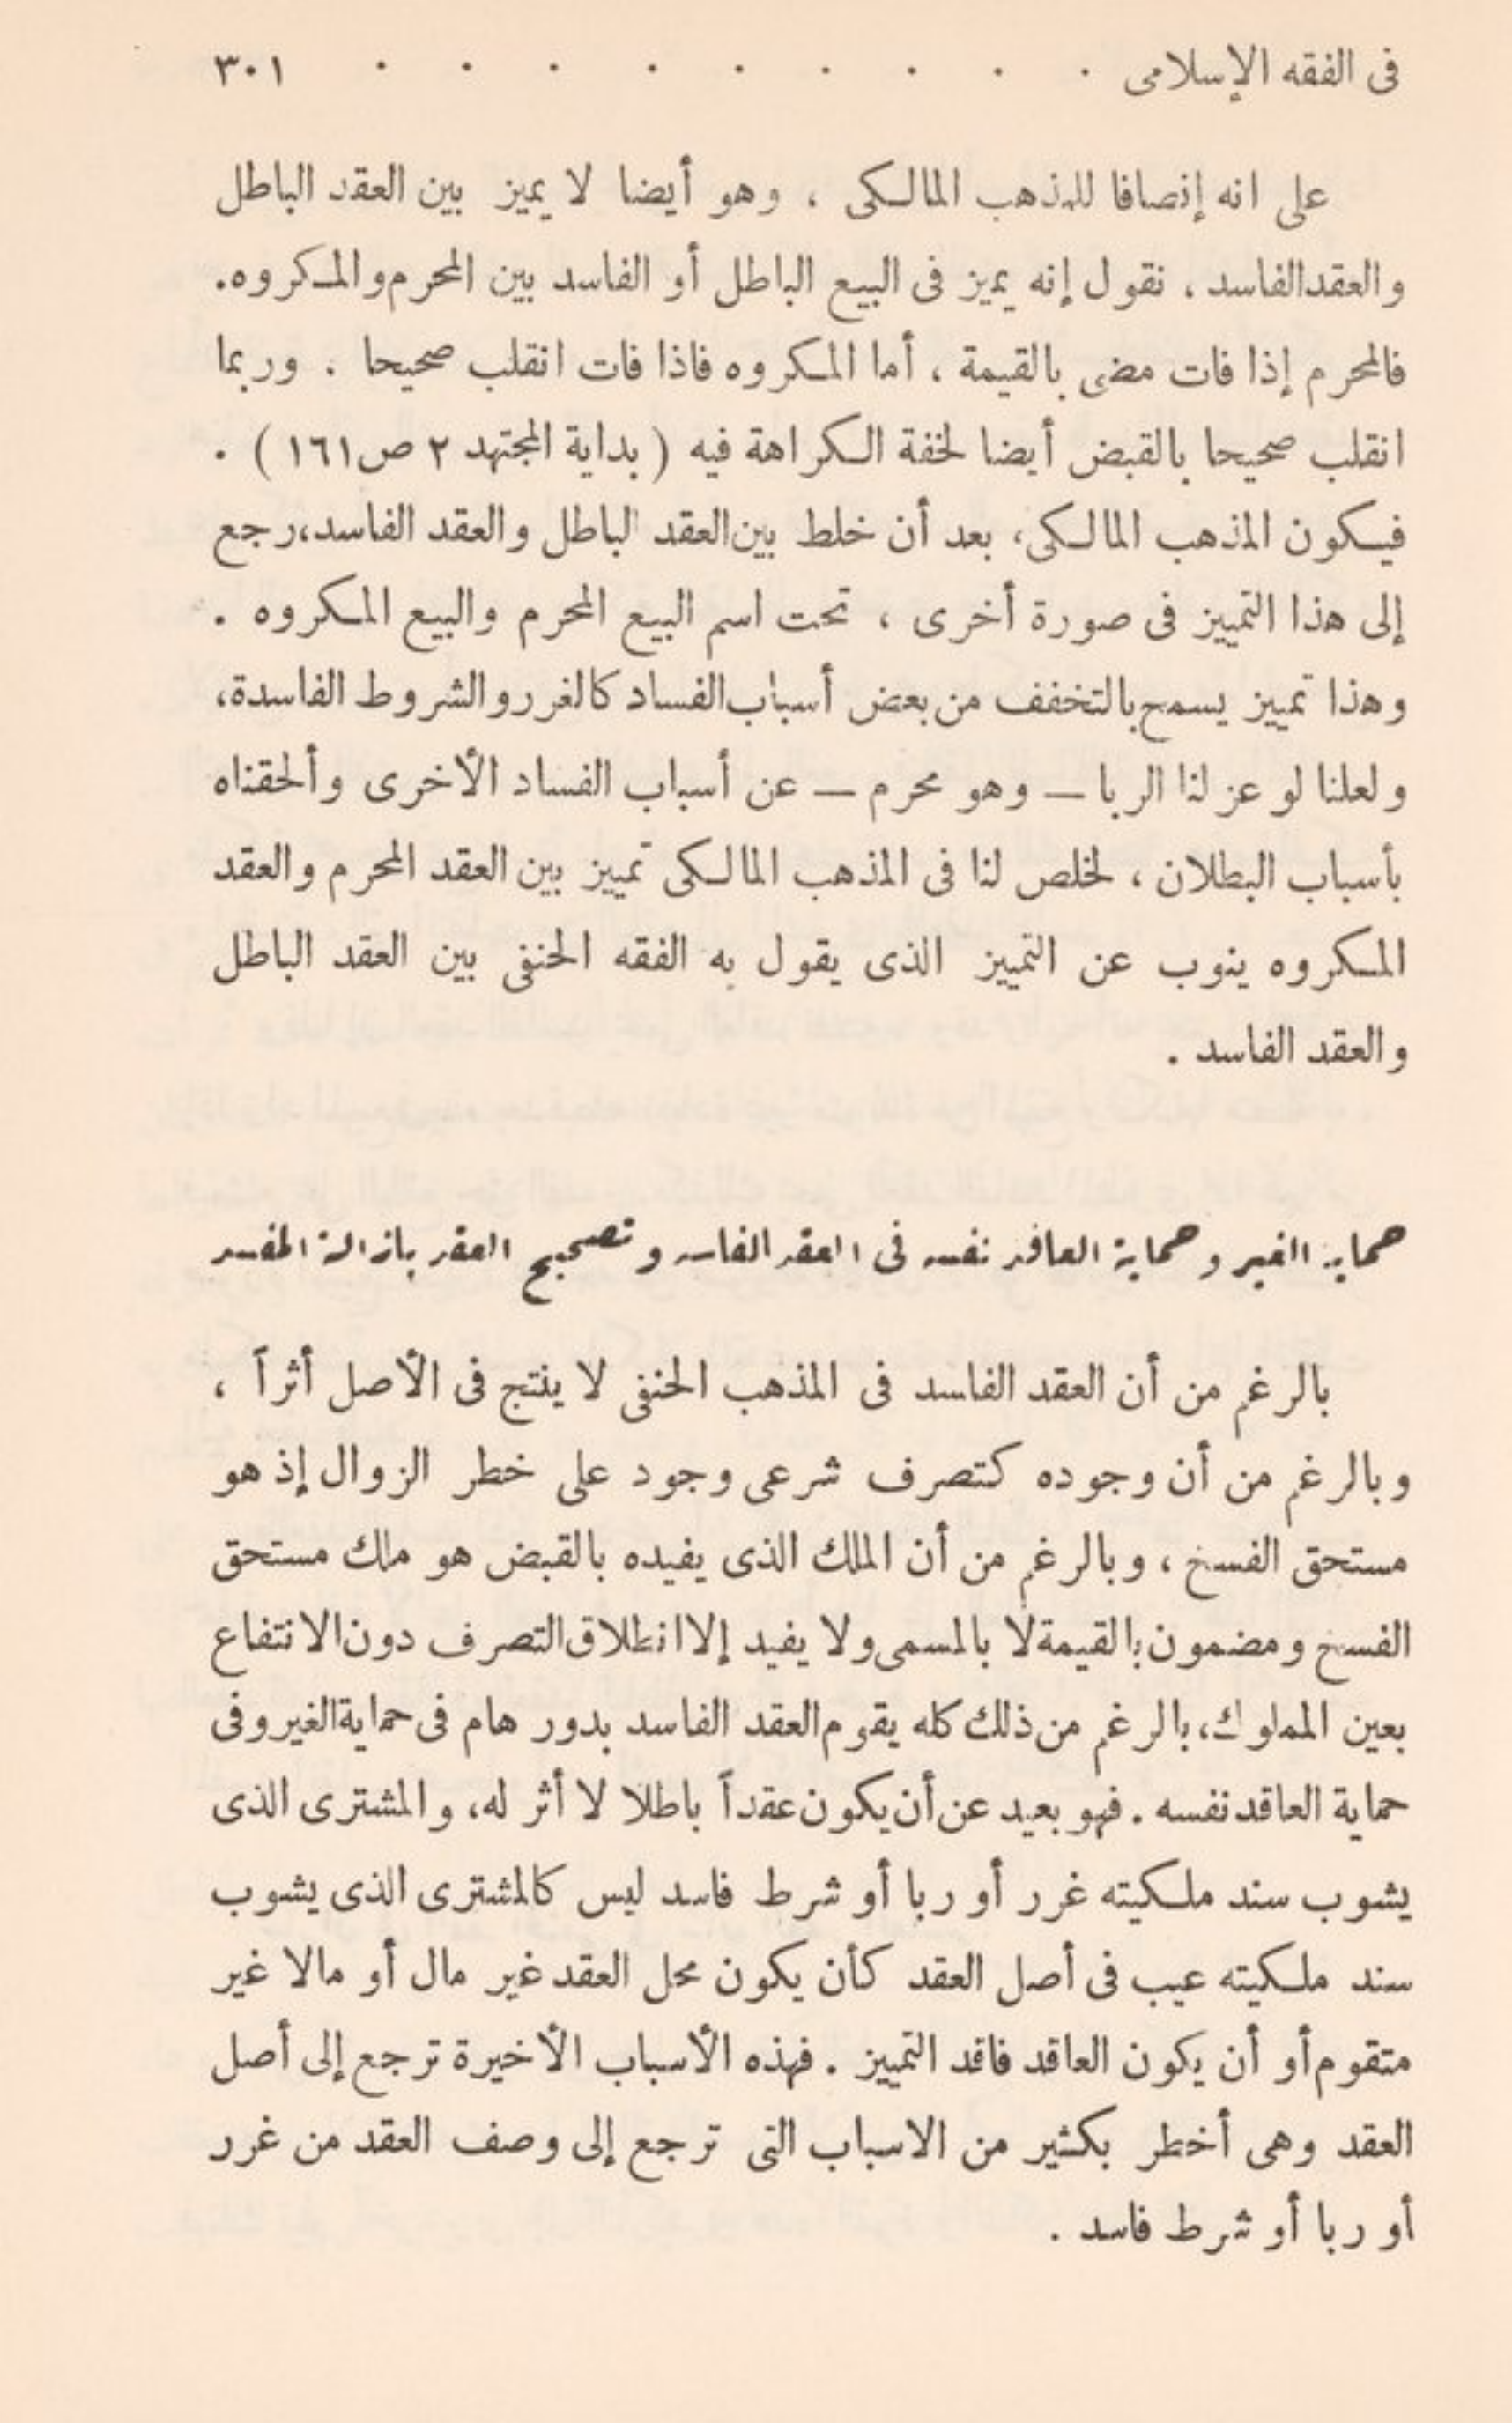 فى الفقه الإسلامى . . . . . . . . . ٣٠١
على انه إنصافا للمذهب المالكى ، وهو أيضا لا يميز بين العقد الباطل
والعقد الفاسد ، نقول إنه يميز فى البيع الباطل أو الفاسد بين المحرم والمكروه.
فالمحرم إذا فات مضى بالقيمة ، أما المكروه فاذا فات انقلب صحيحا . وربما
انقلب صحيحا بالقبض أيضا لخفة الكراهة فيه ( بداية المجتهد ٢ ص ١٦١ ) .
فيكون المذهب المالكى، بعد أن خلط بين العقد الباطل والعقد الفاسد، رجع
إلى هذا التمييز فى صورة أخرى ، تحت اسم البيع المحرم والبيع المكروه .
وهذا تمييز يسمح بالتخفف من بعض أسباب الفساد كالغرر والشروط الفاسدة،
ولعلنا لو عزلنا الربا — وهو محرم — عن أسباب الفساد الأخرى وألحقناه
بأسباب البطلان ، لخلص لنا فى المذهب المالكى تمييز بين العقد المحرم والعقد
المكروه ينوب عن التمييز الذى يقول به الفقه الحنفى بين العقد الباطل
والعقد الفاسد .
حماية الغير وحماية العاقد نفسه فى العقد الفاسد وتصحيح العقد بإزالة المفسد
بالرغم من أن العقد الفاسد فى المذهب الحنفى لا ينتج فى الأصل أثراً ،
وبالرغم من أن وجوده كتصرف شرعى وجود على خطر الزوال إذ هو
مستحق الفسخ ، وبالرغم من أن الملك الذى يفيده بالقبض هو ملك مستحق
الفسخ ومضمون بالقيمة لا بالمسمى ولا يفيد إلا انطلاق التصرف دون الانتفاع
بعين المملوك، بالرغم من ذلك كله يقوم العقد الفاسد بدور هام فى حماية الغير وفى
حماية العاقد نفسه . فهو بعيد عن أن يكون عقداً باطلا لا أثر له، والمشترى الذى
يشوب سند ملكيته غرر أو ربا أو شرط فاسد ليس كالمشترى الذى يشوب
سند ملكيته عيب فى أصل العقد كأن يكون محل العقد غير مال أو مالا غير
متقوم أو أن يكون العاقد فاقد التمييز . فهذه الأسباب الأخيرة ترجع إلى أصل
العقد وهى أخطر بكثير من الاسباب التى ترجع إلى وصف العقد من غرر
أو ربا أو شرط فاسد .